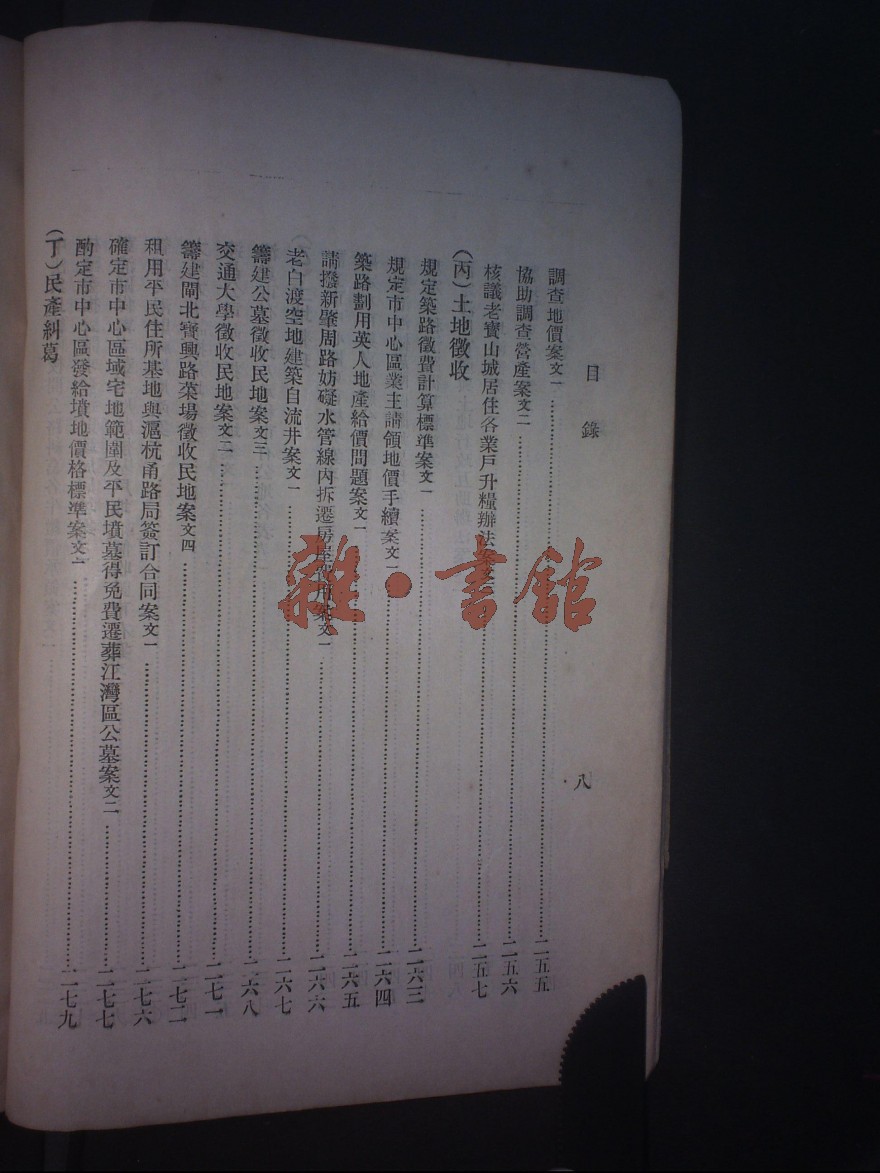 目錄 八
調查地價案文一……二五五
協助調查營產案文二……二五六
核議老寶山城居住各業戶升糧辦法案文……二五七
(丙)土地徵收
規定築路徵費計算標準案文一……二六三
規定市中心區業主請領地價手續案文一……二六四
築路劃用英人地產給價問題案文一……二六五
請撥新肇周路妨礙水管線內拆遷房屋費用案文一……二六六
老白渡空地建築自流井案文一……二六七
籌建公墓徵收民地案文三……二六八
交通大學徵收民地案文二……二七一
籌建閘北寶興路菜場徵收民地案文四……二七二
租用平民住所基地與滬杭甬路局簽訂合同案文一……二七六
確定市中心區域宅地範圍及平民墳墓得免費遷葬江灣區公墓案文二……二七七
酌定市中心區發給墳地價格標準案文六……二七九
(丁)民產糾葛
雜·書館